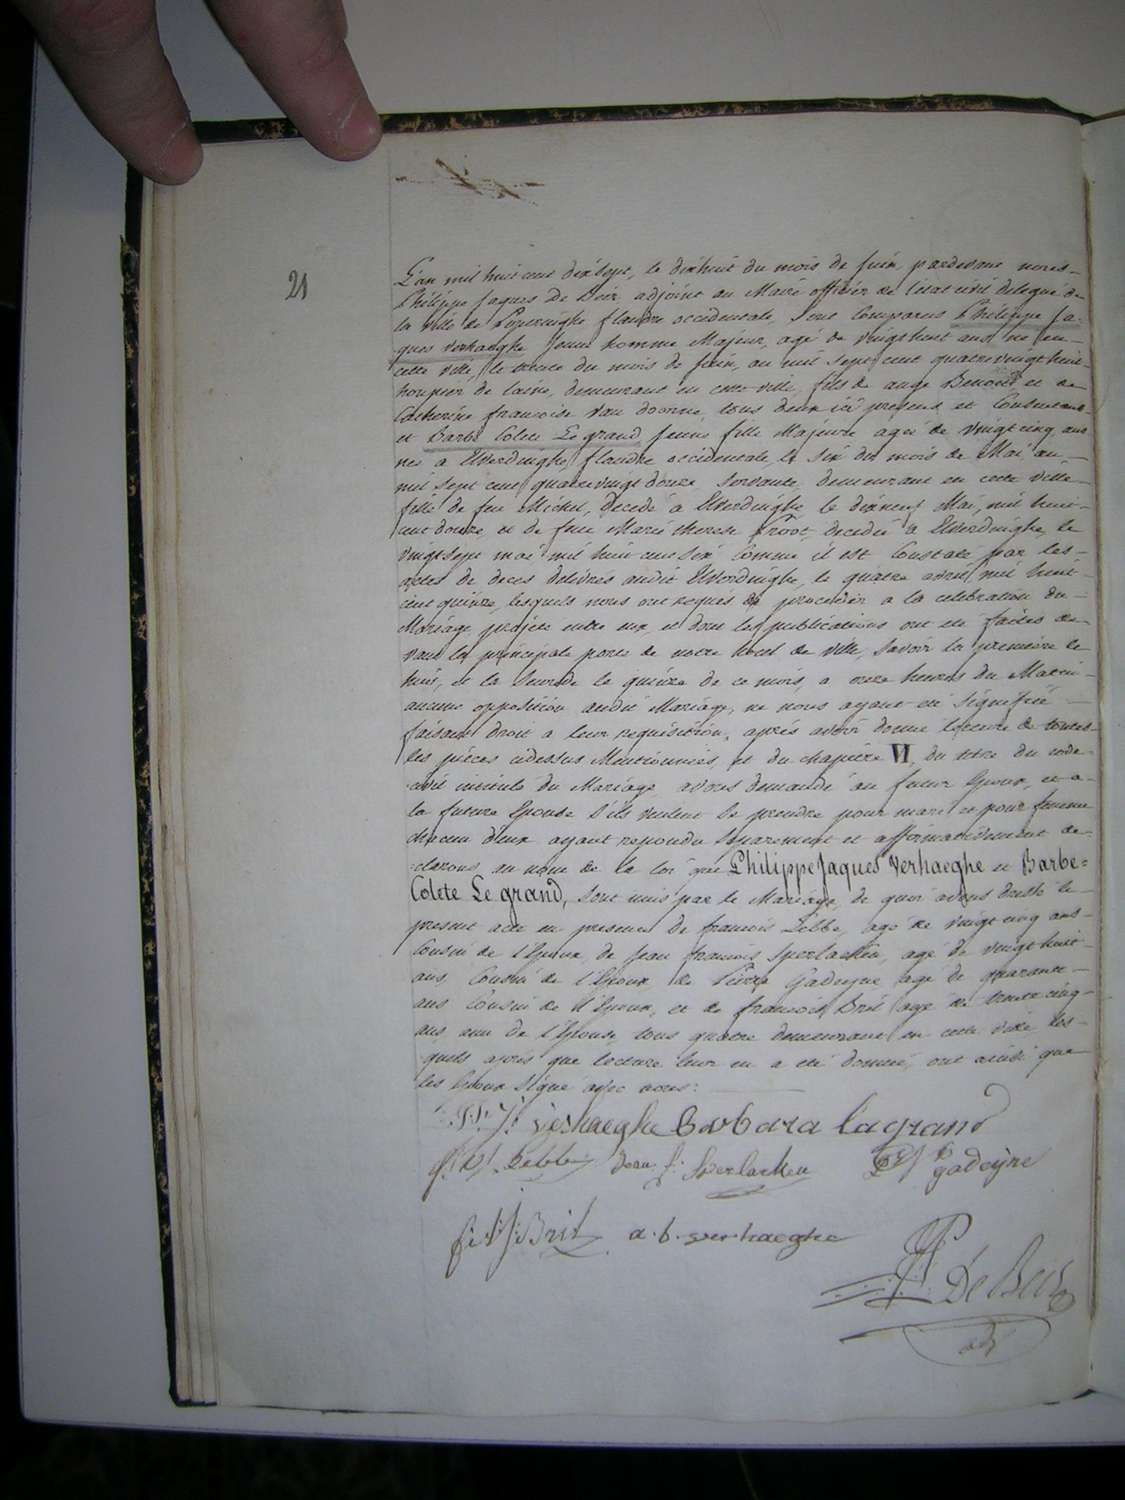 21
L'an mil huit cent dix sept, le dixhuit du mois de Juin, pardevant nous
Philippe Jaques De Beir adjoint au Maire officier de l'etat civil delegué de
la ville de Poperinghe flandre occidentale, sont comparus Philippe Ja-
ques Verhaeghe jeune homme Majeur, agé de vingthuit ans, né en
cette ville, le trente du mois de juin, an mil sept cent quatrevingthuit
houpier de laine, demeurant en cette ville, fils de ange Benoit, et de
Catherine francoise Van doorne, tous deux ici presens et Consentans
et Barbe Colete Le grand jeune fille Majeure agée de vingt cinq ans
née a Elverdinghe, flandre occidentale, le six du mois de Mai an
mil sept cent quatrevingt douze, servante, demeurant en cette ville
fille de feu Michel, decedé à Elverdinghe le dixneuf Mai, mil huit
cent douze, et de feue Marie therese decedée à Elverdinghe, le
vingtsept mai mil huit cent six Comme il est Constaté par les
actes de deces delivrés audit Elverdinghe, le quatre avril mil huit
cent quinze, lesquels nous ont requis de proceder a la celebration du
Mariage projeté entre eux, et dont les publications ont été faites de-
vant la principale porte de notre hotel de ville, Savoir la premiere le
huit, et la Seconde le quinze de ce mois, a onze heures du Matin
aucune opposition audit Mariage, ne nous ayant été Signifiée
faisant droit a leur requisition, après avoir donné lecture de toutes
les pièces cidessus Mentionnées, et du chapitre VI, du titre du code
civil intitulé du Mariage, avons demandé au futur Epoux, et a
la future Epouse S'ils veulent se prendre pour mari et pour femme
chacun d'eux ayant repondu Séparement et affirmativement de-
clarons au nom de la loi que Philippe Jaques Verhaeghe et Barbe-
Colete Le grand, sont unis par le Mariage, de quoi avons dressé le
present acte en presence de francois Lebbe, agé de vingt cinq ans
Cousin de l'Epoux, de Jean francois Sperlaeken, agé de vingthuit
ans, Cousin de l'Epoux de Pierre Gadeyne agé de quarante
ans Cousin de l'Epoux, et de francois Bril agé de trente cinq
ans ami de l'Epouse, tous quatre demeurant en cette ville les-
quels après que lecture leur en a été donnée, ont ainsi que
les Epoux Signé avec nous:
P: J: verhaeghe Barbara lagrand
Lebbe Jean f: Sperlaeken gadeyne
Bril a. b. verhaeghe
De Beir
adj